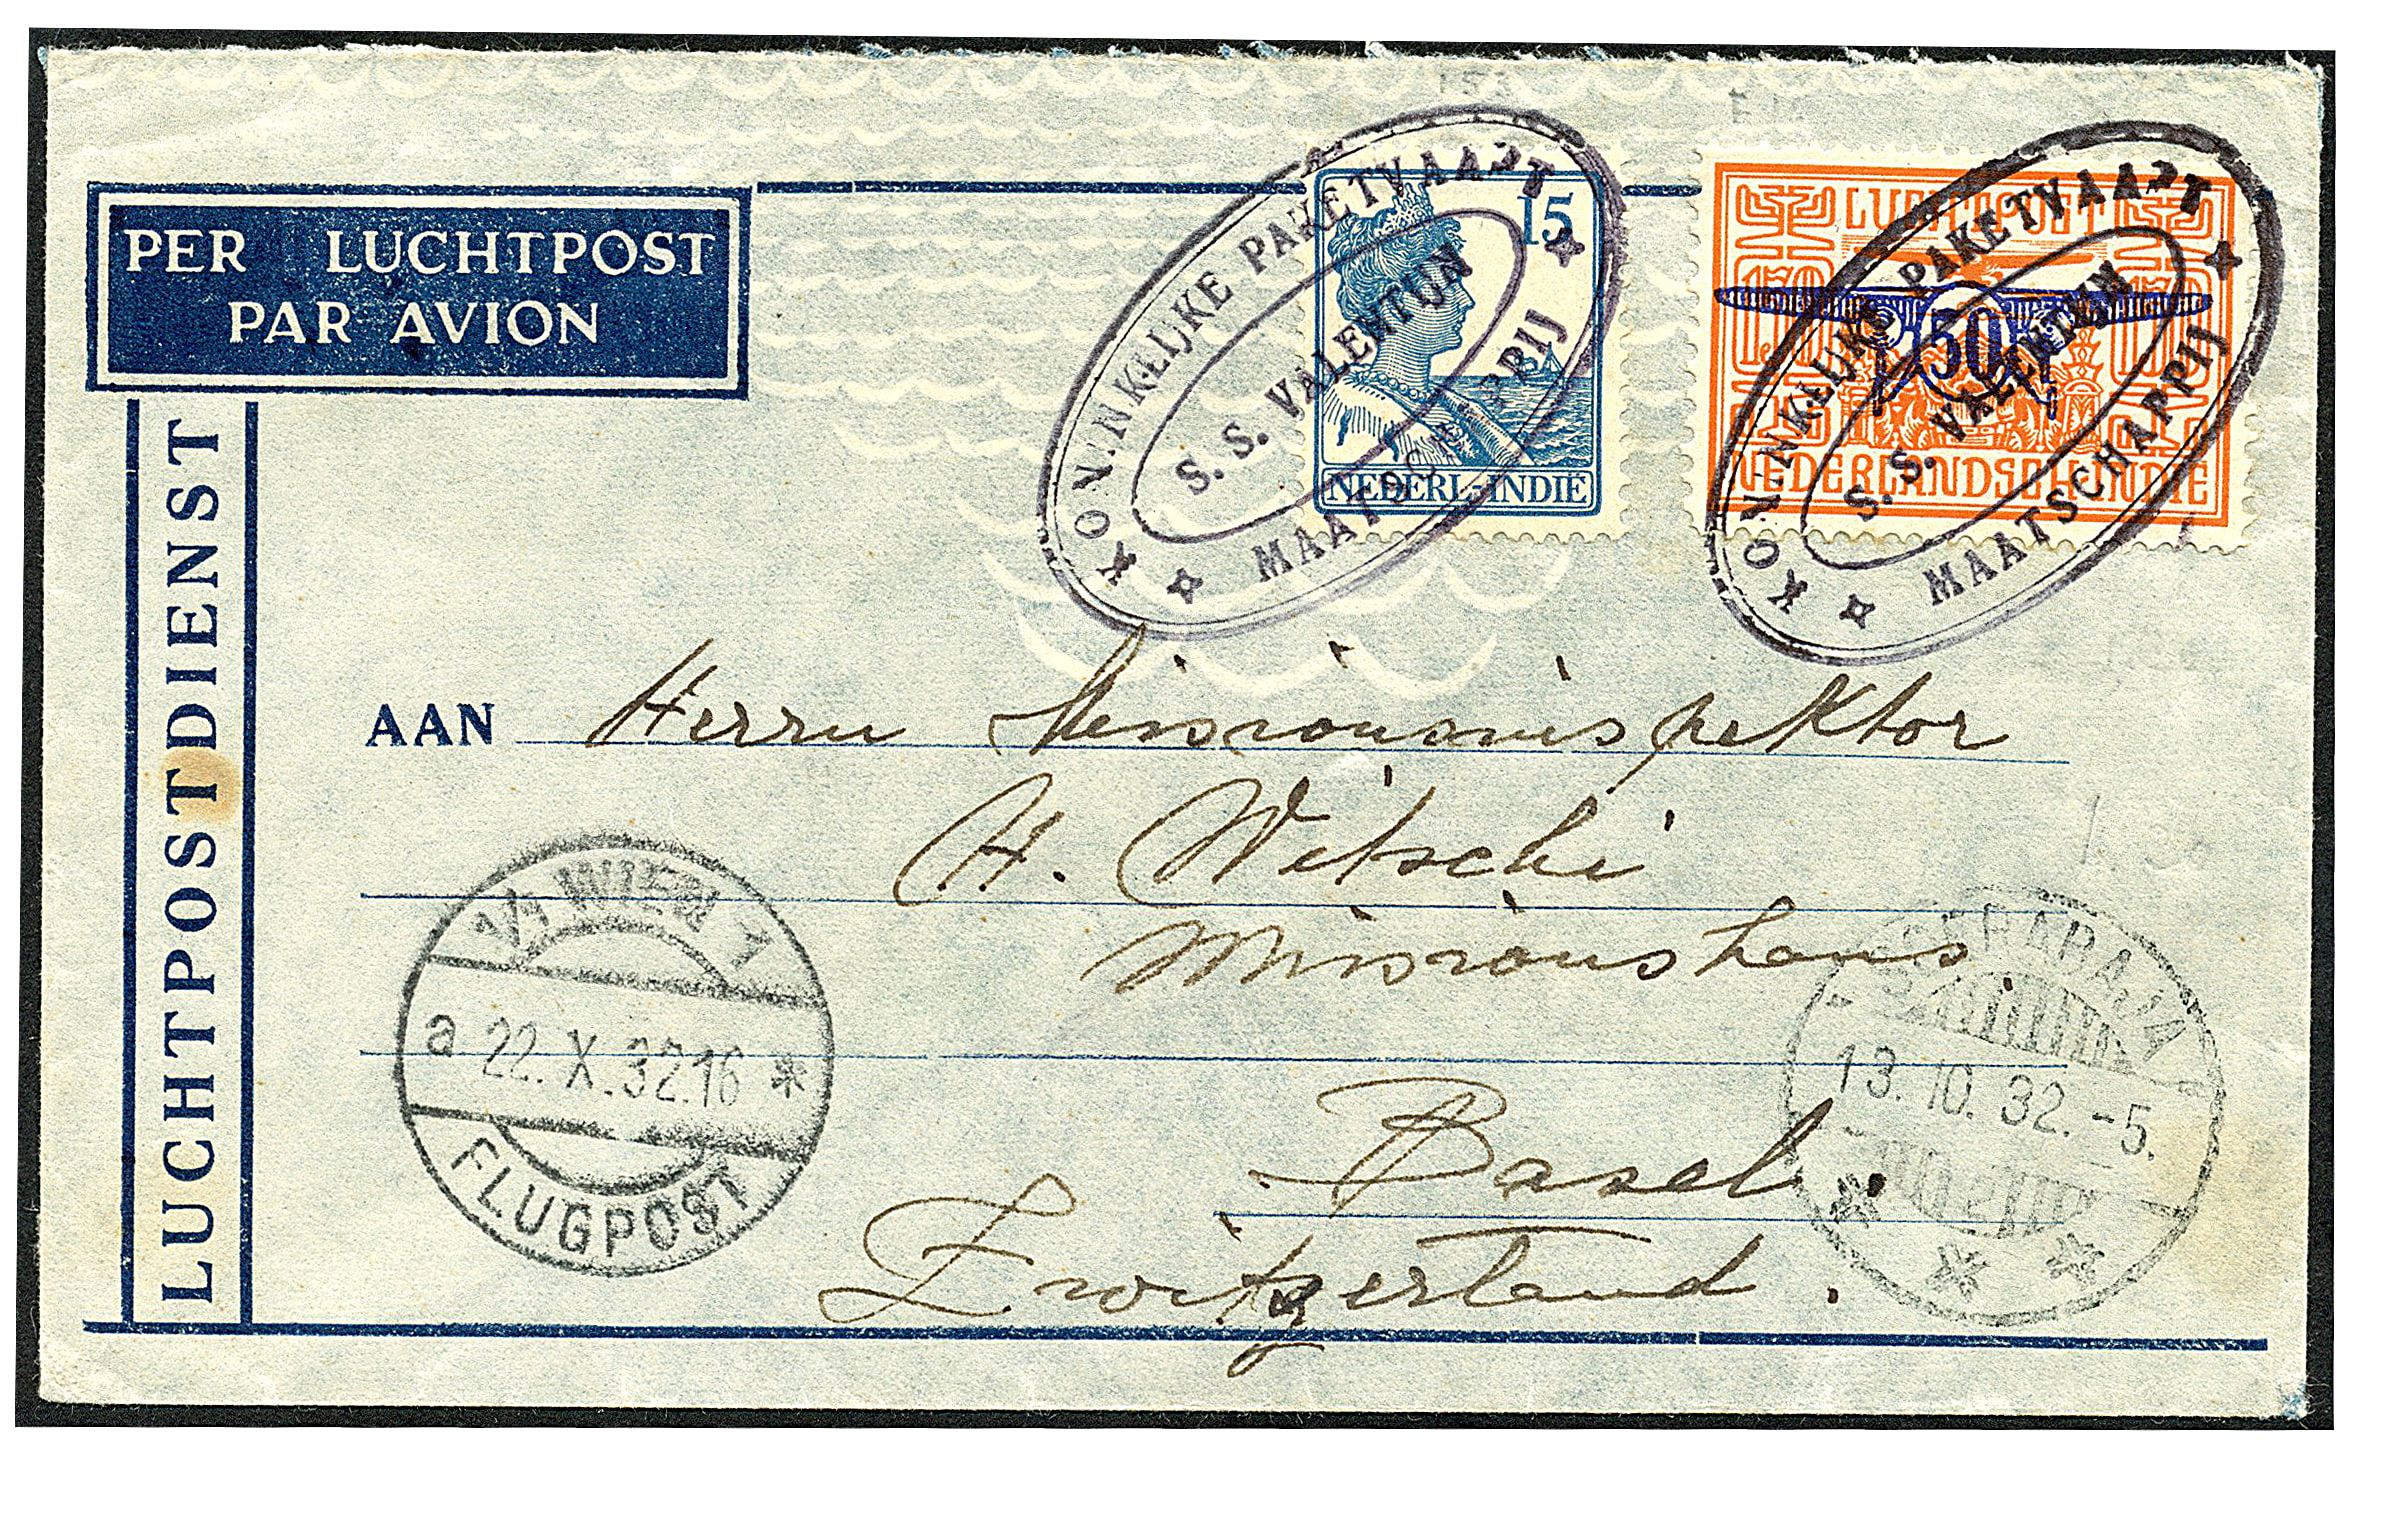 PER LUCHTPOST
PAR AVION
LUCHTPOSTDIENST
KONINKLIJKE PAKETVAART
S. S. VALENTIJN
MAATSCHAPPIJ
15
NEDERL-INDIË
KONINKLIJKE PAKETVAART
S. S. VALENTIJN
MAATSCHAPPIJ
LUCHTPOST
150
50
NEDERLANDSCH-INDIE
AAN Herrn Missionsinspektor
H. Witschi
Missionshaus
Basel.
Zwitzerland.
1/1 WIEN 1
a 22. X. 32.16 *
FLUGPOST
SOERABAJA
13. 10. 32. -5.